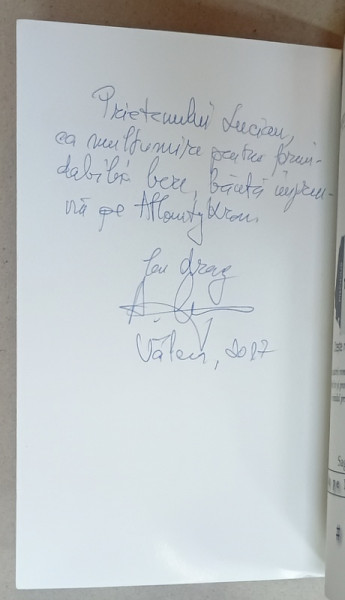 Prietenului Lucian,
ca mulțumire pentru formi-
dabila bere, băută împreu-
nă pe
cu drag
2017